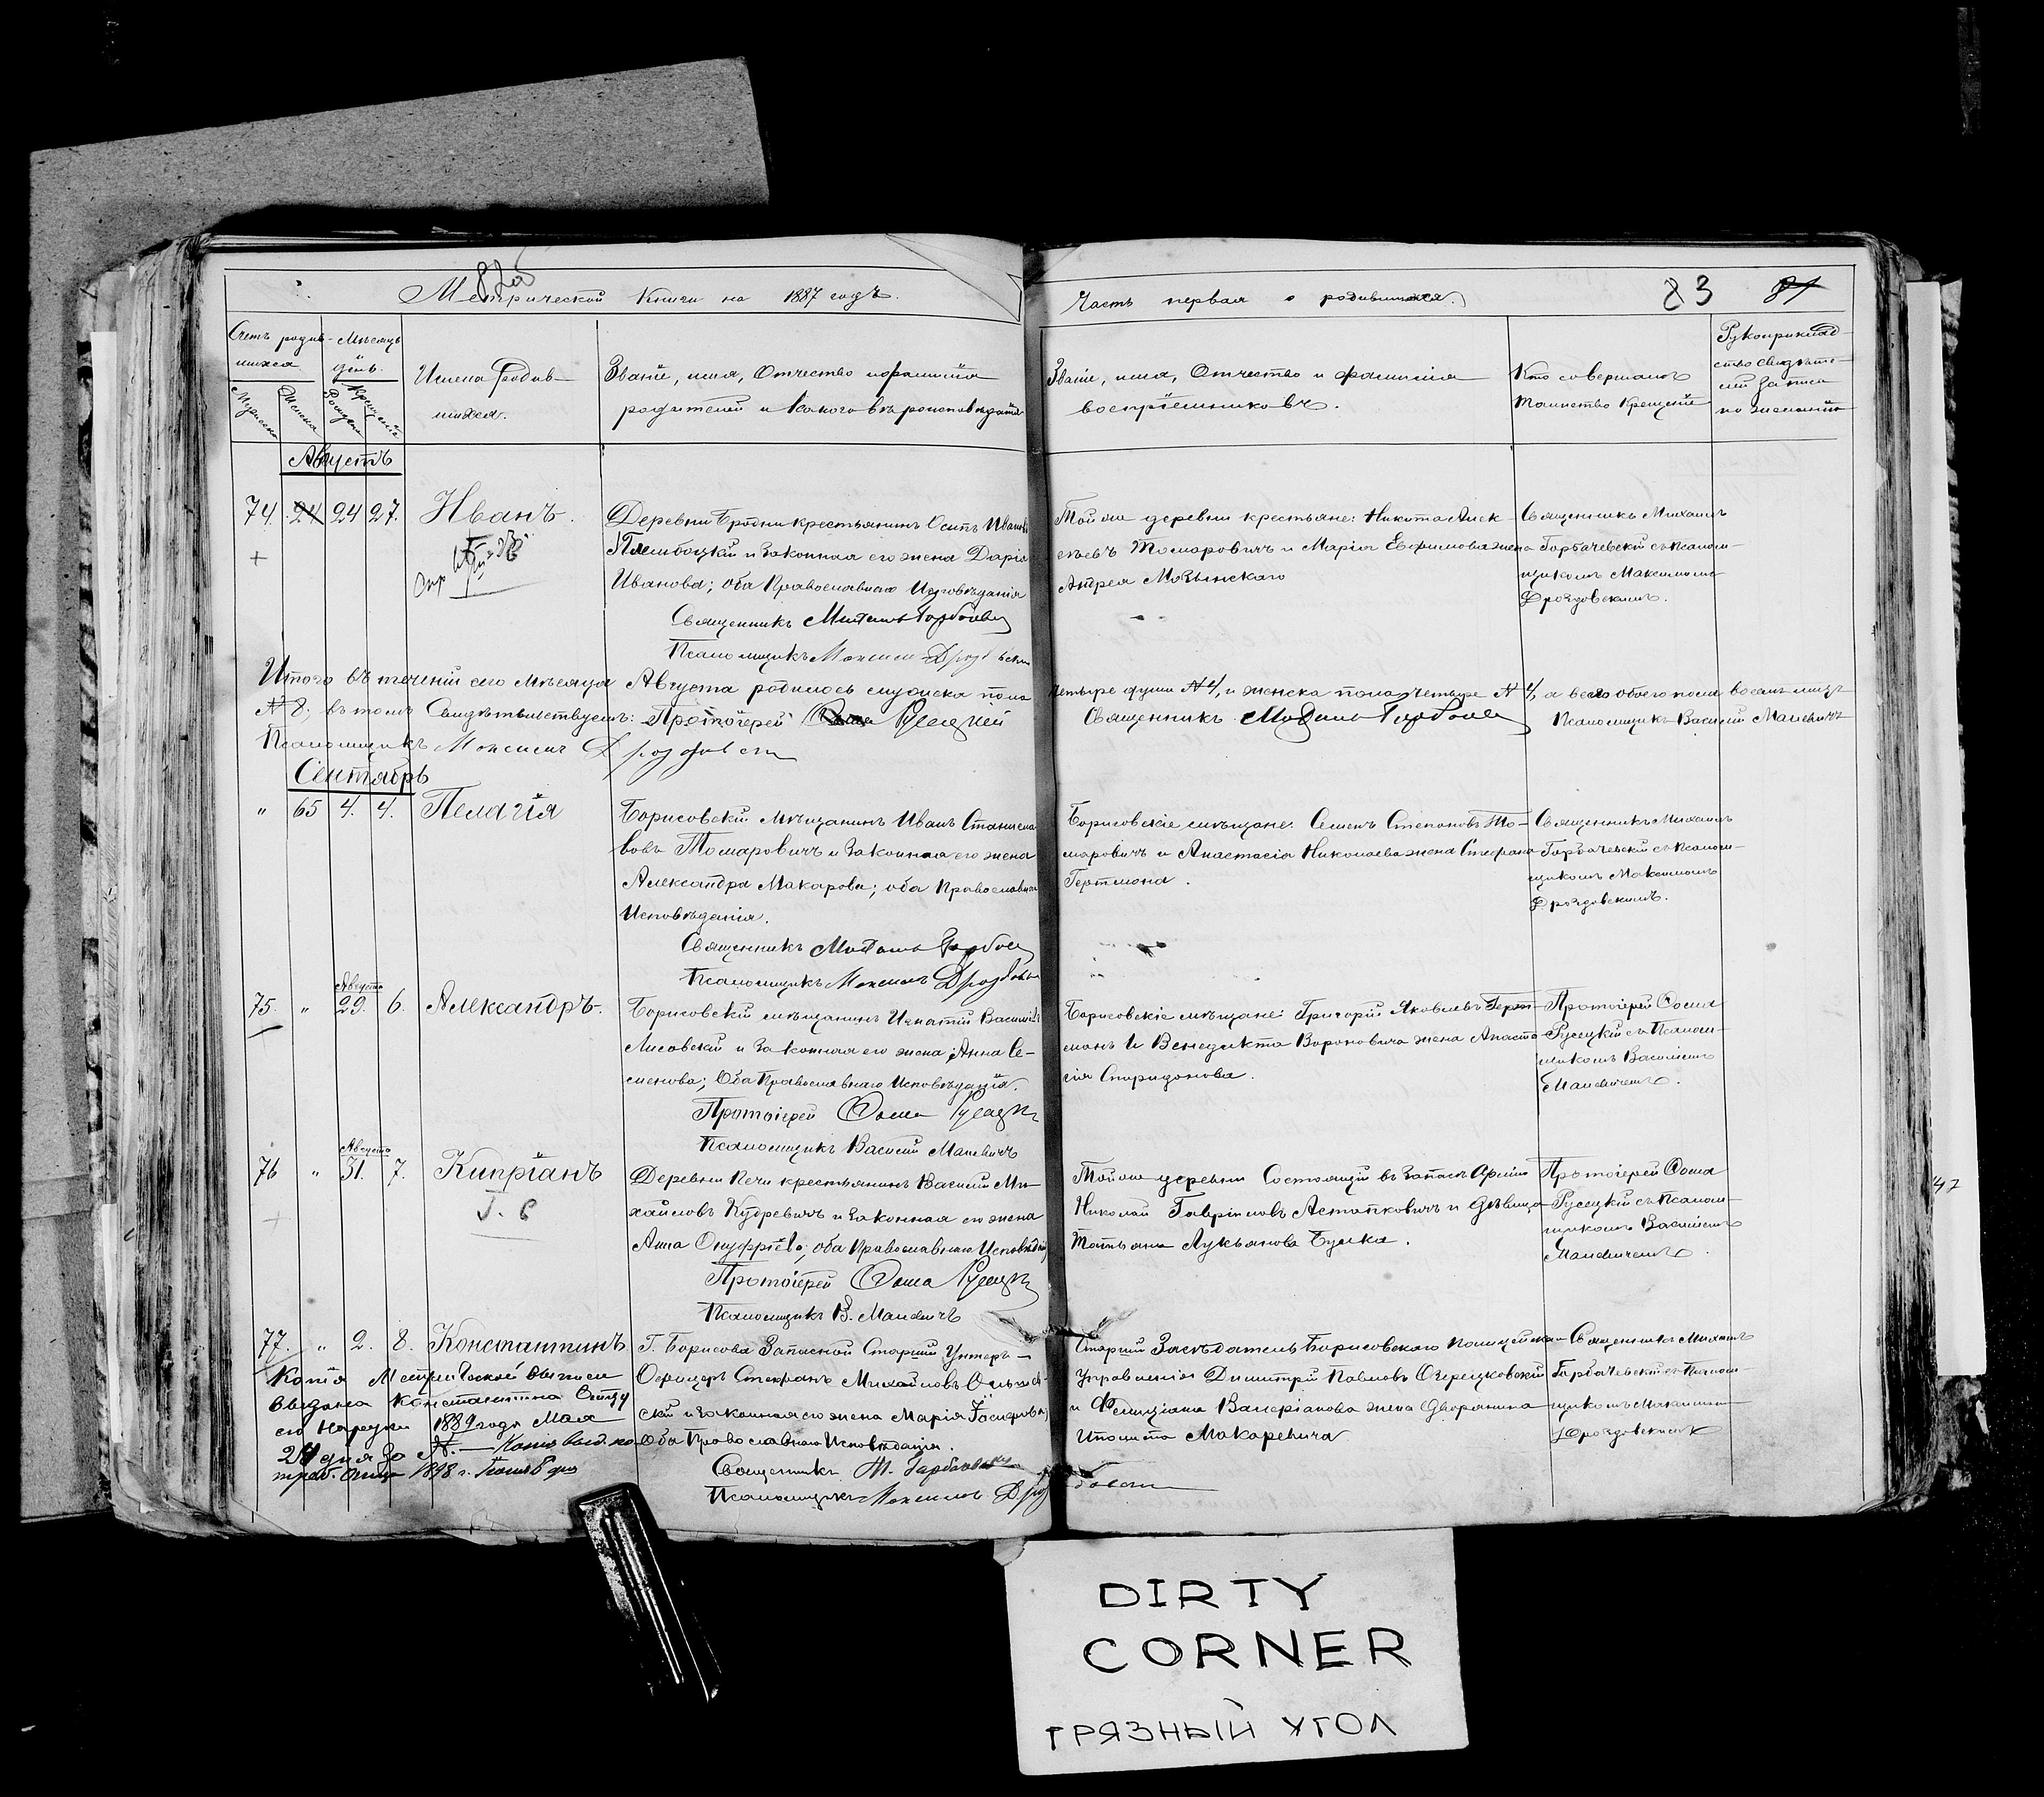 Метрической Книги на 1887 годъ.
Часть первая о родившихся.
83
Счетъ родив-
шихся
Мѣсяцъ
день.
Мужеска
Женска
Рожден.
Крещенія
Имена Родив-
шихся.
Званіе, имя, Отчество и фамилія
родителей и Какого вѣроисповѣданія
Званіе, имя, Отчество и фамилія
воспріемниковъ.
Кто совершалъ
таинство Крещенія
Рукоприклад-
ство свидѣте-
лей записи
по желанію
Августъ
74. 24 24 27. Иванъ.
Деревни Бродни крестьянинъ Осипъ Ивановъ
и Законная его жена Дарія
Иванова; оба Православнаго Исповѣданія
Священникъ Михаилъ Горбачевскій
Псаломщикъ Максимъ Дроздовскій
Той же деревни крестьяне: Никита Алек-
сѣевъ Томаровичъ и Марія Ефимова жена
Андрея Мозынскаго
Священникъ Михаилъ
Горбачевскій съ Псалом-
щикомъ Максимомъ
Дроздовскимъ.
Итого въ теченіи сего мѣсяца Августа родилось мужска пола четыре души № 4, и женска пола четыре № 4, а всего обоего пола восемь лицъ
№ 8; въ томъ Свидѣтельствуемъ: Протоіерей Ѳома Русецкій Священникъ Михаилъ Горбачевскій Псаломщикъ Василій Малевичъ
Псаломщикъ Максимъ Дроздовскій
Сентябрь
" 65 4. 4. Пелагія
Борисовскій мѣщанинъ Иванъ Станисла
вовъ Томаровичъ и Законная его жена
Александра Макарова; оба Православнаго
Исповѣданія.
Священникъ Михаилъ Горбачевскій
Псаломщикъ Максимъ Дроздовскій
Борисовскіе мѣщане: Семенъ Степановъ То-
маровичъ и Анастасія Николаева жена Стефана
Гертмана.
Священникъ Михаилъ
Горбачевскій съ Псалом-
щикомъ Максимомъ
Дроздовскимъ.
Августа
75. " 29. 6. Александръ.
Борисовскій мѣщанинъ Игнатій Васильевъ
Лисовскій и Законная его жена Анна Се-
менова; Оба Православнаго Исповѣданія.
Протоіерей Ѳома Русецкій
Псаломщикъ Василій Малевичъ
Борисовскіе мѣщане: Григорій Яковлевъ Герт-
манъ и Венедикта Вороновича жена Анаста-
сія Спиридонова.
Протоіерей Ѳома
Русецкій съ Псалом-
щикомъ Василіемъ
Малевичемъ.
Августа
76 " 31. 7. Кипріанъ
Деревни Печи крестьянинъ Василій Ми-
хайловъ Кудревичъ и Законная его жена
Анна Онуфріева; оба Православнаго Исповѣданія
Протоіерей Ѳома Русецкій
Псаломщикъ В. Малевичъ
Той же деревни Состоящій въ Запасѣ Арміи
Николай Гавріиловъ Астапковичъ и дѣвица
Татьяна Лукьянова Булка.
Протоіерей Ѳома
Русецкій съ Псалом-
щикомъ Василіемъ
Малевичемъ.
77. " 2. 8. Константинъ
Г. Борисова Запасной Старшій Унтеръ-
Офицеръ Стефанъ Михайловъ
и законная его жена Марія
Оба Православнаго Исповѣданія.
Священникъ М. Горбачевскій
Псаломщикъ Максимъ Дроздовскій
Старшій Засѣдатель Борисовскаго Полицейска-
Управленія Димитрій Павловъ Озерецковскій
и Фелиціана Валеріанова жена Дворянина
Иполита Макаревича
Священникъ Михаилъ
Горбачевскій съ Псалом-
щикомъ Максимомъ
Дроздовскимъ
Копія Метрической выписи
выдана Константина Отцу
1889 года Мая
1898 г.
47
DIRTY
CORNER
ГРЯЗНЫЙ УГОЛ